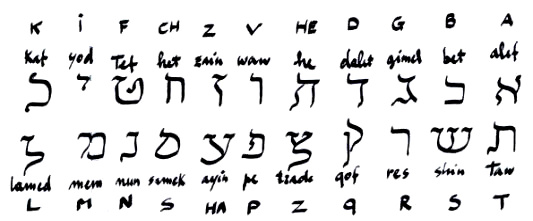 K I F CH Z V HE D G B A
Kaf yod Tet het zain waw he dalet gimel bet alef
א ב ג ד ה ו ז ח ט י כ
ת ש ר ק צ פ ע ס נ מ ל
lamed mem nun samek ayin pe tzade qof res shin Taw
L M N S HA P Z Q R S T